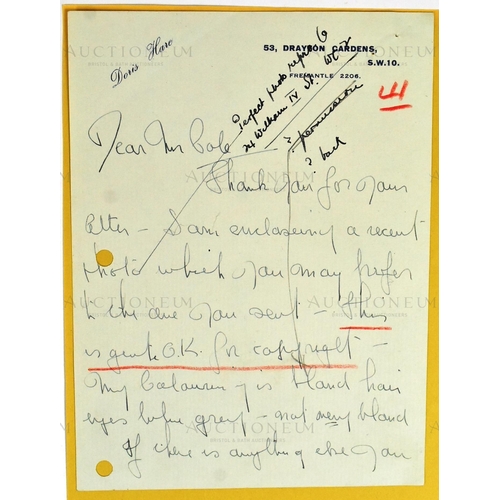 Doris Hare
53, DRAYSON GARDENS,
S.W.10.
FREMANTLE 2206.
Perfect photo repros 6
24 William IV St. WC2
? permission
? back
Dear Mr Cole
Thank you for your
letter – I am enclosing a recent
photo which you may prefer
to the one you sent – This
is quite O.K. for copyright –
My colouring is blond hair
eyes blue grey – not very blond
If there is anything else you
AUCTIONEUM